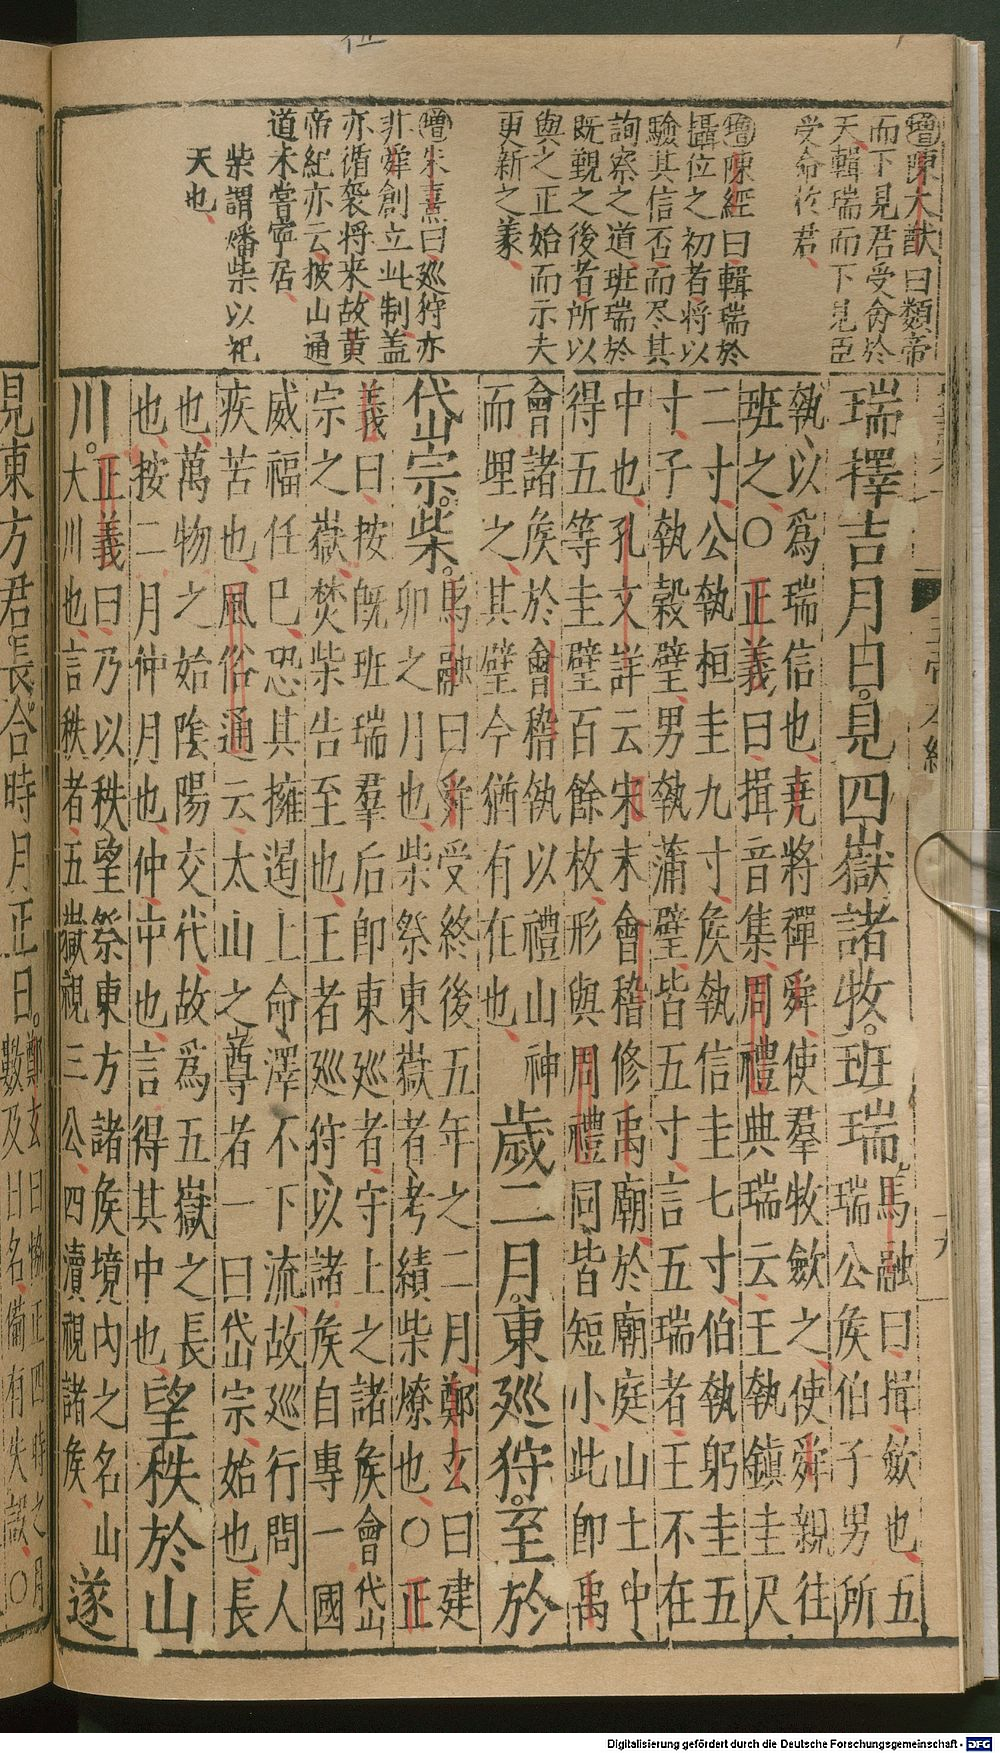 增陳大猷曰類帝
而下見君受命於
天輯瑞而下見臣
受命於君
增陳經曰輯瑞於
攝位之初者將以
驗其信否而尽其
詢察之道班瑞於
既覲之後者所以
與之正始而示夫
更新之義
增朱熹曰廵狩亦
非舜創立此制盖
亦循襲将来故黄
帝紀亦云披山通
道未嘗寧居
柴謂燔柴以祀
天也
瑞擇吉月日見四嶽諸牧班瑞
馬融曰揖斂也五
瑞公矦伯子男所
執以爲瑞信也堯將禪舜使羣牧斂之使舜親往
班之○正義曰揖音集周禮典瑞云王執鎮圭尺
二寸公執桓圭九寸矦執信圭七寸伯執躬圭五
寸子執穀璧男執蒲璧皆五寸言五瑞者王不在
中也孔文詳云宋末會稽修禹廟於廟庭山土中
得五等圭璧百餘枚形與周禮同皆短小此即禹
會諸矦於會稽執以禮山神
而埋之其璧今猶有在也
歲二月東廵狩至於
岱宗柴
馬融曰舜受終後五年之二月鄭玄曰建
卯之月也柴祭東嶽者考績柴燎也○正
義曰按既班瑞羣后即東廵者守土之諸矦會岱
宗之嶽焚柴告至也王者廵狩以諸矦自專一國
威福任已恐其擁遏上命澤不下流故廵行問人
疾苦也風俗通云太山之尊者一曰岱宗始也長
也萬物之始陰陽交代故爲五嶽之長
也按二月仲月也仲中也言得其中也
望秩於山
川
正義曰乃以秩望祭東方諸矦境內之名山
大川也言秩者五嶽視三公四瀆視諸矦
遂
見東方君長合時月正日
鄭玄曰協正四時之月
數及日名備有失誤○
Digitalisierung gefördert durch die Deutsche Forschungsgemeinschaft - DFG